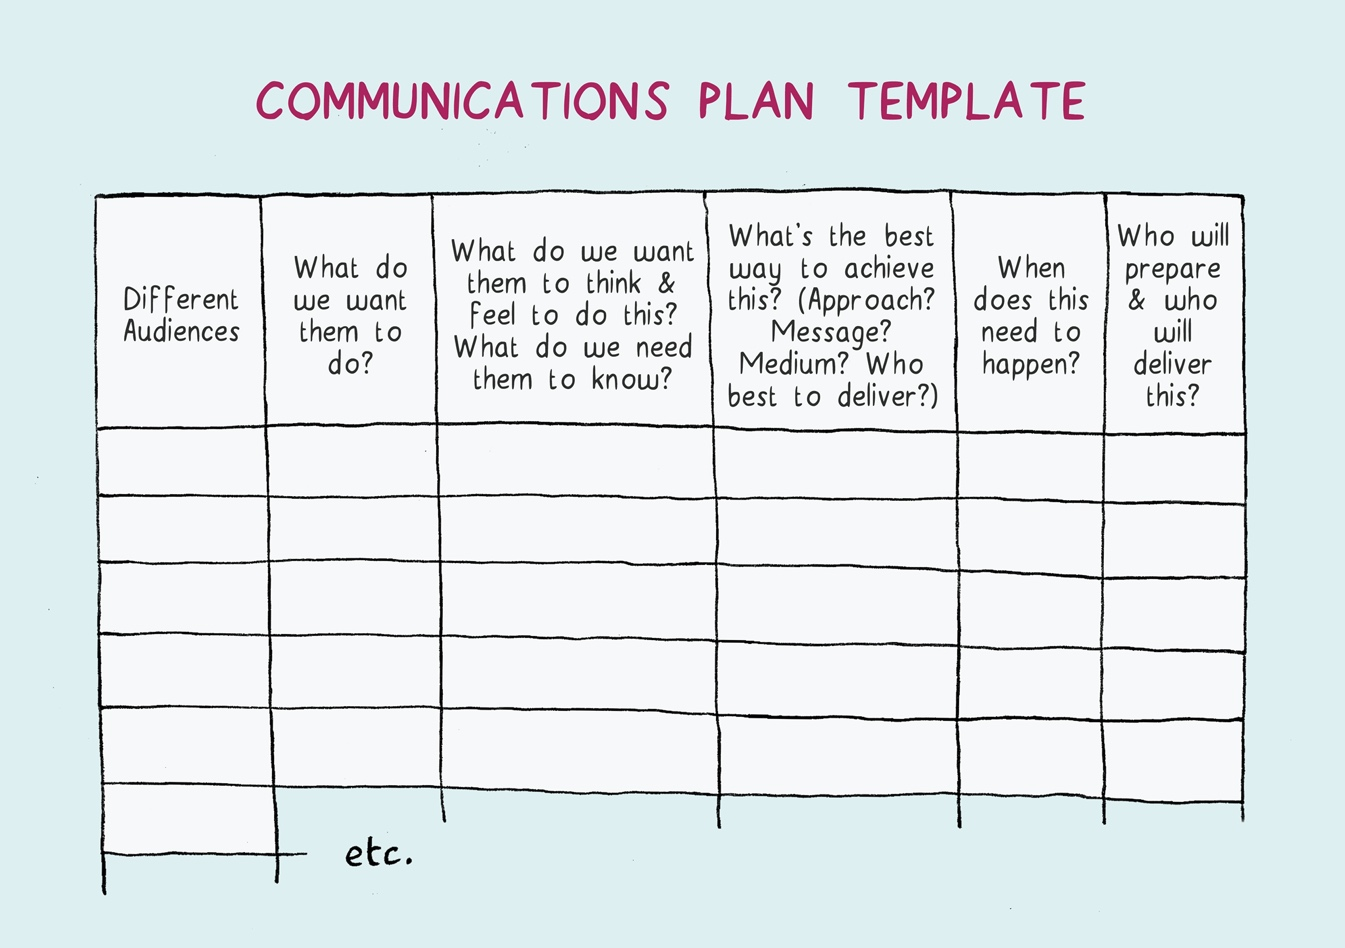 COMMUNICATIONS PLAN TEMPLATE
Different
Audiences
What do
we want
them to
do?
What do we want
them to think &
feel to do this?
What do we need
them to know?
What's the best
way to achieve
this? (Approach?
Message?
Medium? Who
best to deliver?)
When
does this
need to
happen?
Who will
prepare
& who
will
deliver
this?
etc.